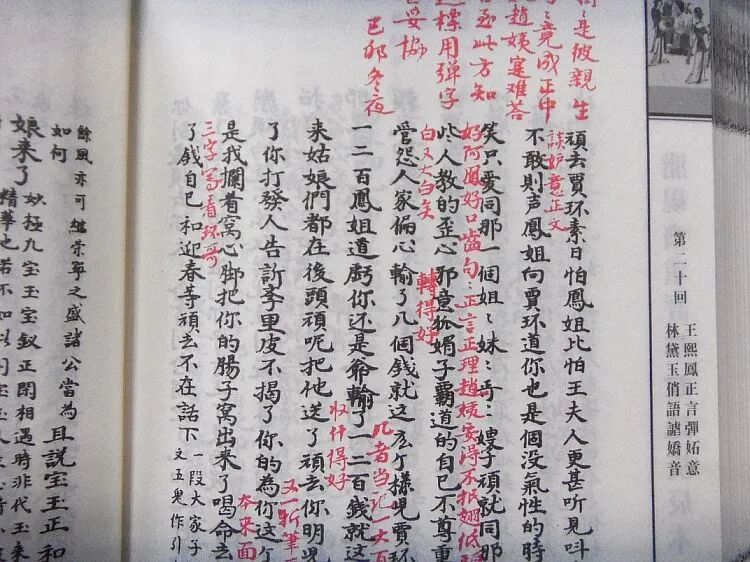 第二十回
王熙鳳正言彈妬意
林黛玉俏語謔嬌音
是彼親生
竟成正中
趙姨寔难荅
至此方知
標用弹字
妥協
己卯冬夜
頑去賈环素日怕鳳姐比怕王夫人更甚听見呌
談妒意正文
不敢則声鳳姐向賈环道你也是個没氣性的時
笑只愛同那一個姐〻妹〻哥〻嫂子頑就同那
好阿鳳好口齒句〻正言正理趙姨安得不抵翅低
些人教的歪心邪意狐媚子霸道的自己不尊重
白又大白矣
轉得好
怨人家偏心輸了几個錢就這広个樣児賈环
一二百鳳姐道虧你还是爺輸了一二百錢就這
来姑娘們都在後頭頑呢把他送了頑去你明児
收什得好
了你打發人告訴李里皮不揭了你的為你這个
又一折筆
是我攔着窩心脚把你的腸子窩出来了喝命去
本来面
三字寫着环哥
了錢自己和迎春等頑去不在話下
一段大家子
文五鬼作引
且說宝玉正和
餘風亦可繼榮寧之盛諸公當為
如何
娘来了
妙極凡宝玉宝釵正閑相遇時非代玉来